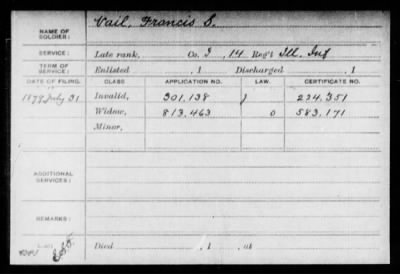 NAME OF SOLDIER: Vail, Francis S.
SERVICE: Late rank, Co. I, 14 Reg't Ill. Inf
TERM OF SERVICE: Enlisted , 1 Discharged , 1
DATE OF FILING. CLASS APPLICATION NO. LAW. CERTIFICATE NO.
1879 July 31 Invalid, 301,138 234,351
Widow, 813,463 583,171
Minor,
ADDITIONAL SERVICES:
REMARKS:
Died , 1 , at